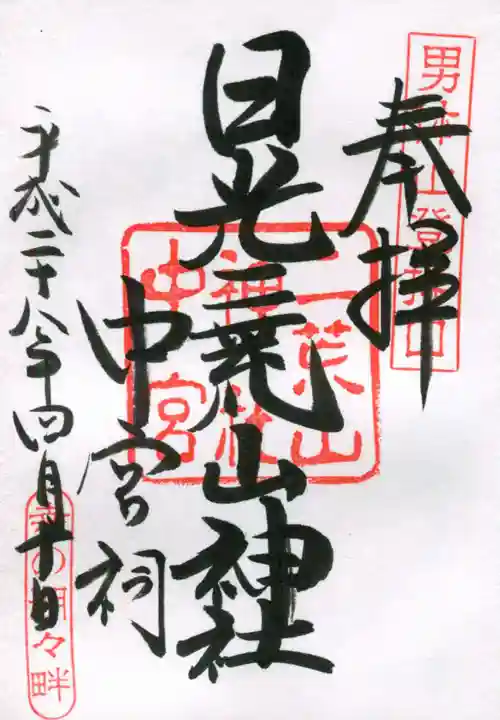 奉拝
男体山登拝口
日光二荒山神社
中宮祠
二荒山神社中宮
平成二十八年四月十日
幸の湖々畔